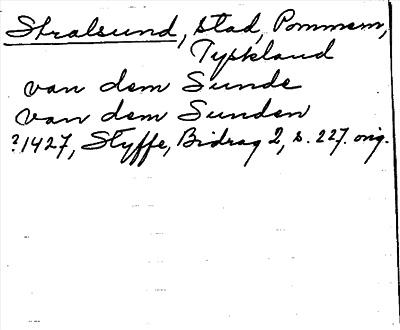 Stralsund, stad, Pommern,
Tyskland
van dem Sunde
van dem Sunden
?1427, Styffe, Bidrag 2, s. 227. orig.